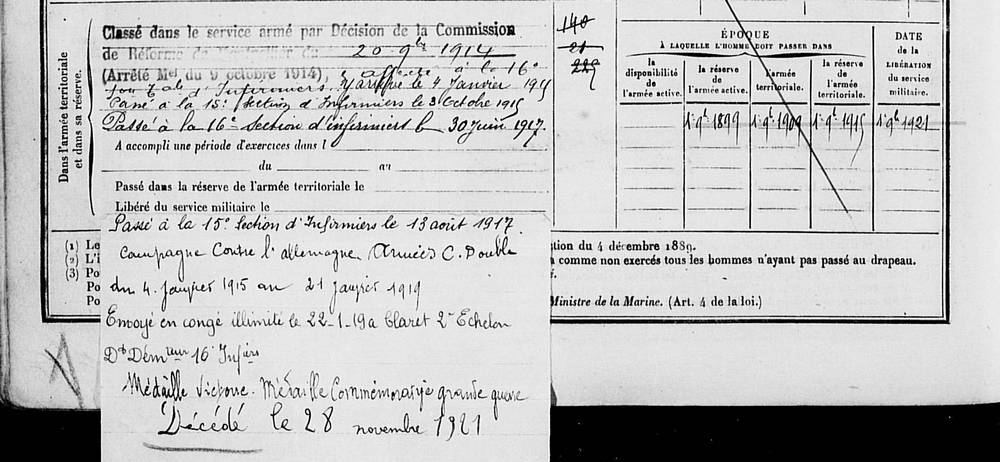 Dans l'armée territoriale
et dans sa réserve.
Classé dans le service armé par Décision de la Commission
de Réforme de du 20 9bre 1914
(Arrêté Mel du 9 octobre 1914), affecté à la 16e
d'Infirmiers. Arrivé le 4 Janvier 1915
Passé à la 15e Section d'Infirmiers le 3 Octobre 1915
Passé à la 16e Section d'infirmiers le 30 Juin 1917.
A accompli une période d'exercices dans l
du au
Passé dans la réserve de l'armée territoriale le
Libéré du service militaire le
Passé à la 15e Section d'Infirmiers le 13 août 1917.
Campagne Contre l'allemagne Armées C. Double
du 4 Janvier 1915 au 21 Janvier 1919
Envoyé en congé illimité le 22-1-19 a Claret 2e Echelon
Dt Démteur 16e Infiers
Médaille Victoire. Médaille Commémorative grande guerre
Décédé le 28 novembre 1921
140
21
229
ÉPOQUE
À LAQUELLE L'HOMME DOIT PASSER DANS
la
disponibilité
de
l'armée active.
la réserve
de
l'armée active.
l'armée
territoriale.
la réserve
de
l'armée
territoriale.
DATE
de la
LIBÉRATION
du service
militaire.
1er 9b 1899
1er 9b 1909
1er 9b 1915
1er 9b 1921
(1) Le
(2) L'i
(3) Po
Po
Po
tion du 4 décembre 1889.
comme non exercés tous les hommes n'ayant pas passé au drapeau.
Ministre de la Marine. (Art. 4 de la loi.)